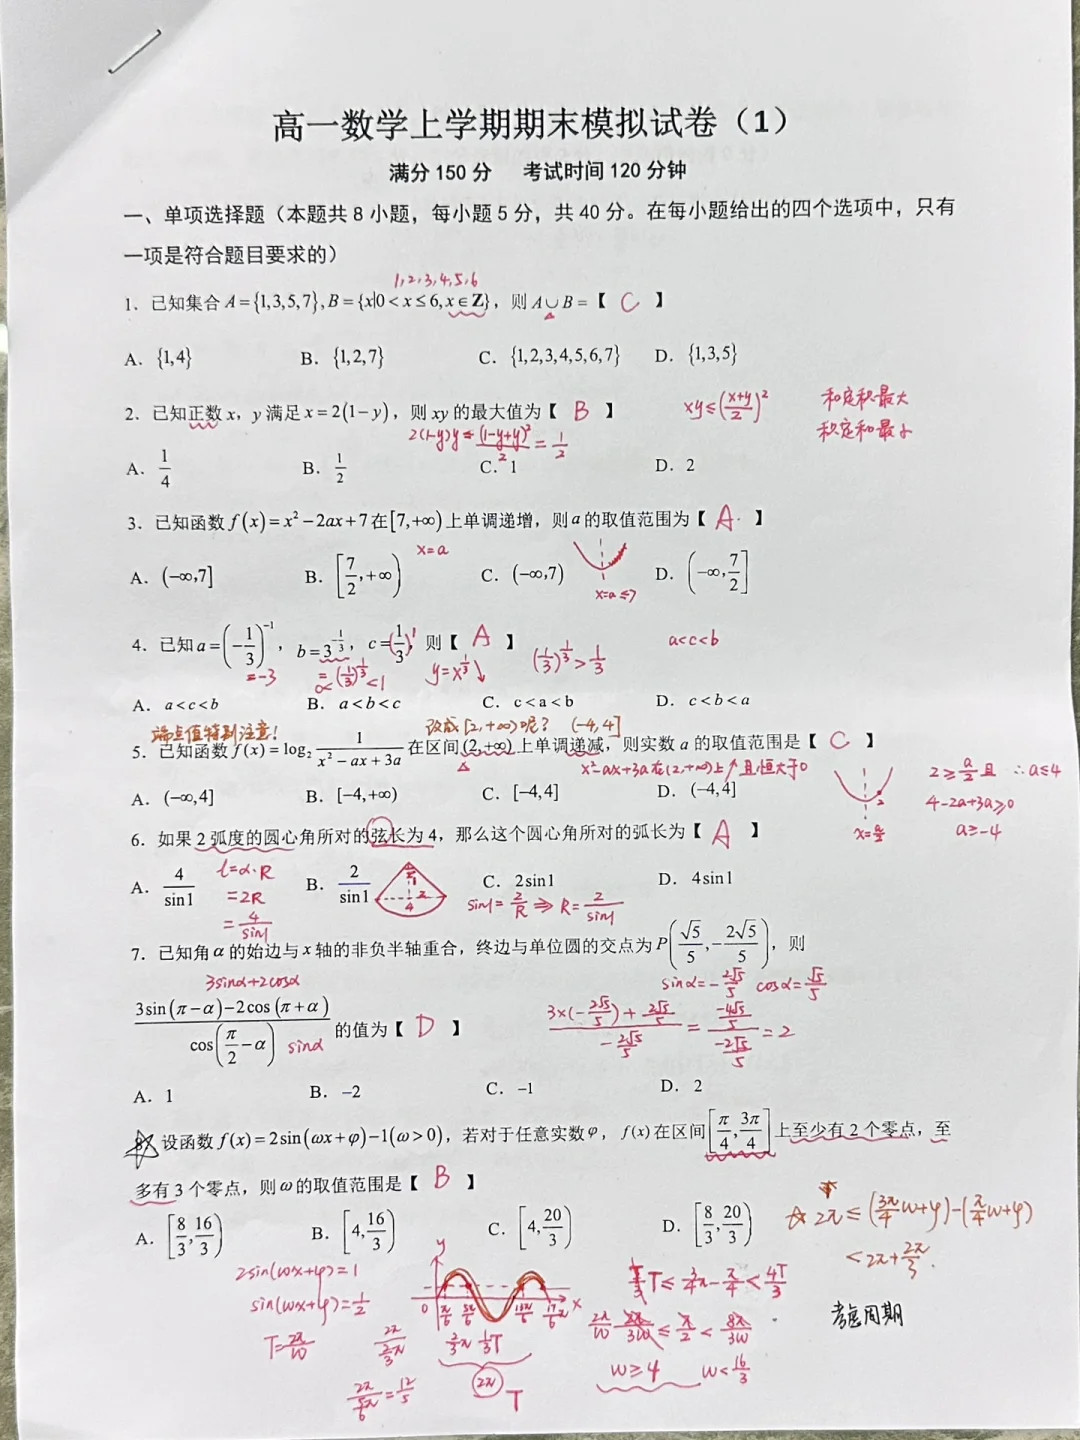 高一数学上学期期末模拟试卷（1）
满分 150 分 考试时间 120 分钟
一、单项选择题（本题共 8 小题，每小题 5 分，共 40 分。在每小题给出的四个选项中，只有
一项是符合题目要求的）
1,2,3,4,5,6
1．已知集合 A={1,3,5,7},B={x|0<x≤6,x∈Z}，则 A∪B=【 C 】
A．{1,4} B．{1,2,7} C．{1,2,3,4,5,6,7} D．{1,3,5}
2．已知正数 x，y 满足 x=2(1−y)，则 xy 的最大值为【 B 】 xy≤((x+y)/2)² 和定积最大
积定和最小
2(1-y)y≤(1-y+y)²/2=1/2
A．1/4 B．1/2 C．1 D．2
3．已知函数 f(x)=x²−2ax+7 在[7,+∞)上单调递增，则 a 的取值范围为【 A 】
x=a
A．(−∞,7] B．[7/2,+∞) C．(−∞,7) D．(−∞,7/2]
x=a≤7
4．已知 a=(−1/3)^(−1)，b=3^(−1/3)，c=1/3，则【 A 】 a<c<b
=-3 =(1/3)^(1/3)<1 (1/3)^(1/3)>1/3
A．a<c<b B．a<b<c C．c<a<b D．c<b<a
端点值特别注意！ 改成[2,+∞)呢? (-4,4]
5．已知函数 f(x)=log₂ 1/(x²−ax+3a) 在区间(2,+∞)上单调递减，则实数 a 的取值范围是【 C 】
x²-ax+3a在(2,+∞)上↑且恒大于0
A．(−∞,4] B．[−4,+∞) C．[−4,4] D．(−4,4]
2≥a/2且 ∴a≤4
4-2a+3a≥0
a≥-4
x=a/2
6．如果 2 弧度的圆心角所对的弦长为 4，那么这个圆心角所对的弧长为【 A 】
A．4/sin1 B．2/sin1 C．2sin1 D．4sin1
l=α·R
=2R
=4/sin1
sin1=2/R⇒R=2/sin1
7．已知角 α 的始边与 x 轴的非负半轴重合，终边与单位圆的交点为 P(√5/5,−2√5/5)，则
3sinα+2cosα sinα=-2√5/5 cosα=√5/5
(3sin(π−α)−2cos(π+α))/cos(π/2−α) 的值为【 D 】
sinα
(3×(-2√5/5)+2√5/5)/(-2√5/5)=(-4√5/5)/(-2√5/5)=2
A．1 B．−2 C．−1 D．2
8．设函数 f(x)=2sin(ωx+φ)−1(ω>0)，若对于任意实数 φ，f(x)在区间[π/4,3π/4]上至少有 2 个零点，至
多有 3 个零点，则 ω 的取值范围是【 B 】
A．[8/3,16/3) B．[4,16/3) C．[4,20/3) D．[8/3,20/3)
☆ 2π≤(3π/4w+φ)-(π/4w+φ)
<2π+2π/3.
2sin(ωx+φ)=1
sin(ωx+φ)=1/2
T=2π/ω
y
0 π/6 5π/6 13π/6 17π/6 x
2/3π 1/3T
2π T
T≤3/4π-π/4<4T/3
≤π/2<8π/3ω
w≥4 w<16/3
考虑周期